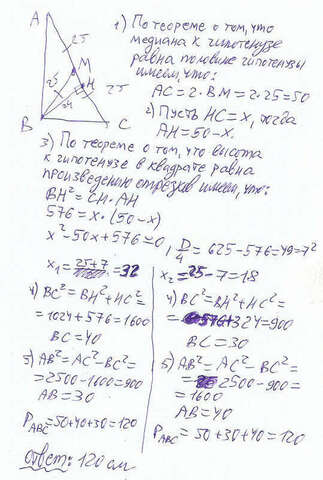 A
25
M
H
25
25
24
B
C
1) По теореме о том, что
медиана к гипотенузе
равна половине гипотенузы
имеем, что:
AC = 2·BM = 2·25 = 50
2) Пусть HC = x, тогда
AH = 50 - x.
3) По теореме о том, что высота
к гипотенузе в квадрате равна
произведению отрезков имеем, что:
BH² = CH·AH
576 = x·(50-x)
x² - 50x + 576 = 0, D/4 = 625 - 576 = 49 = 7²
x₁ = 25+7 = 32
x₂ = 25 - 7 = 18
4) BC² = BH² + HC² =
= 1024 + 576 = 1600
BC = 40
5) AB² = AC² - BC² =
= 2500 - 1600 = 900
AB = 30
P_ABC = 50 + 40 + 30 = 120
4) BC² = BH² + HC² =
= 576 + 324 = 900
BC = 30
5) AB² = AC² - BC² =
= 2500 - 900 =
= 1600
AB = 40
P_ABC = 50 + 30 + 40 = 120
Ответ: 120 см